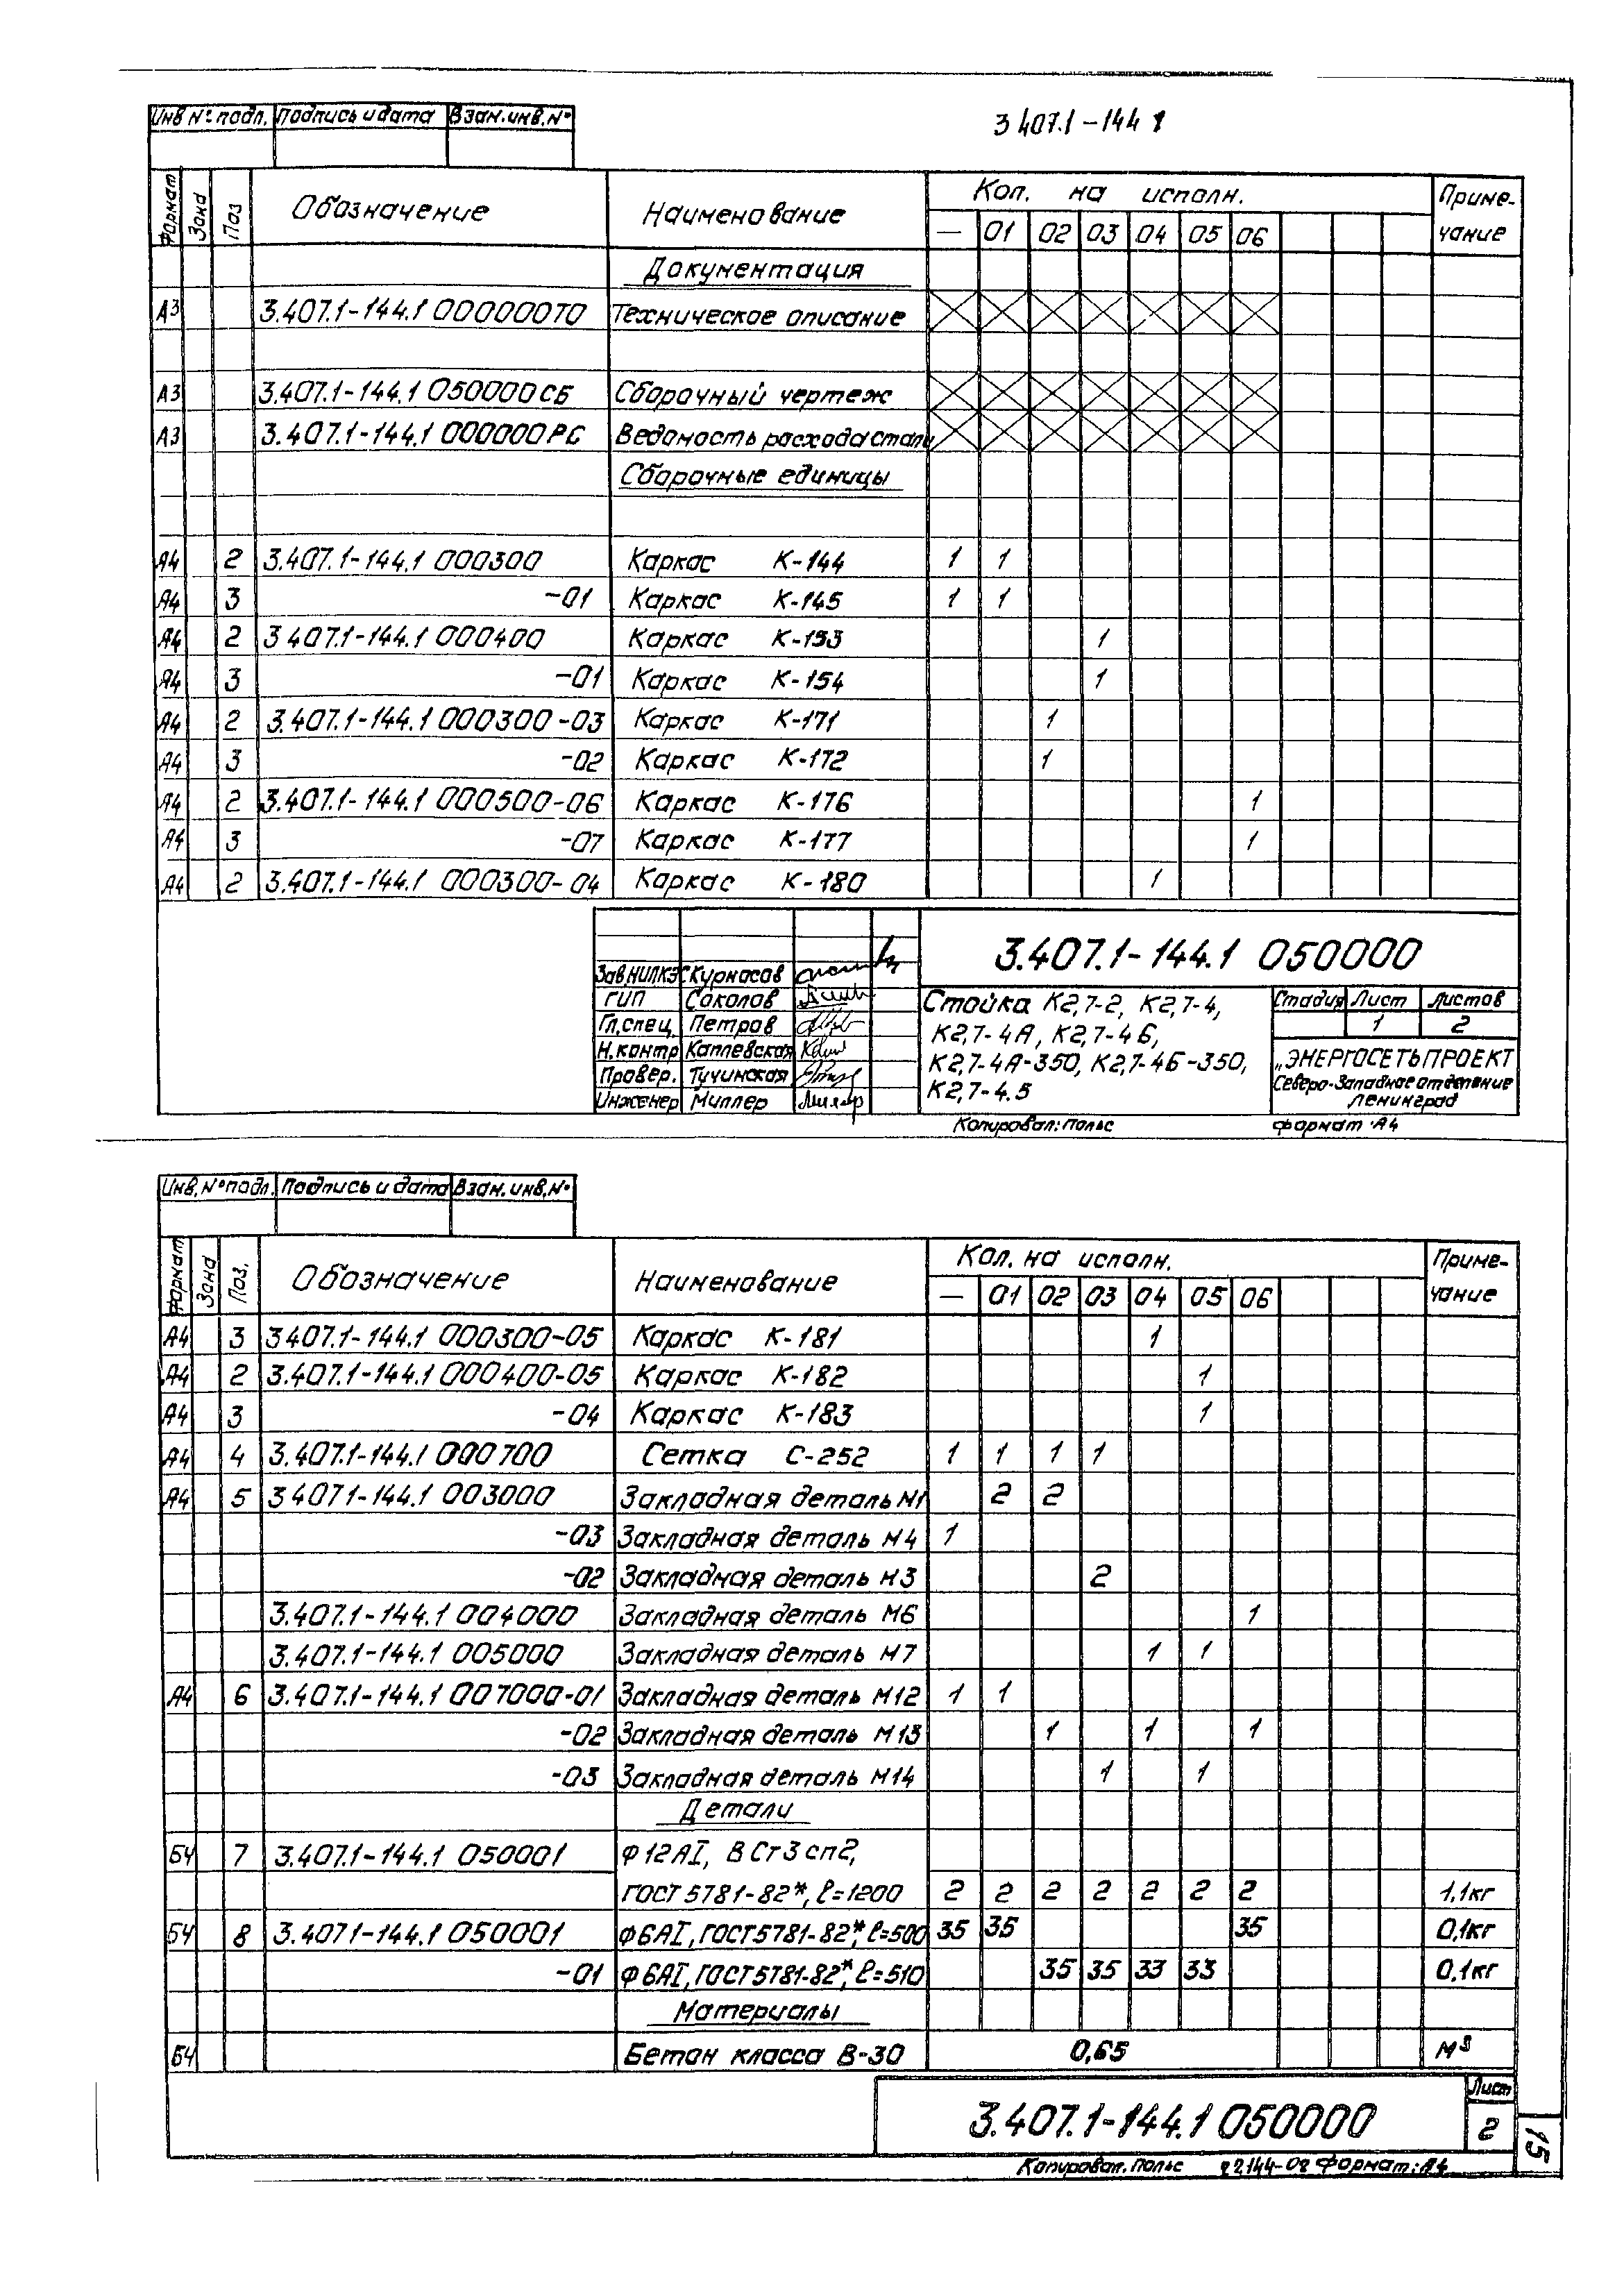 3 407.1-144 1
Инв № подл. Подпись и дата Взам. инв. №
Формат Зона Поз Обозначение Наименование Кол. на исполн. Приме-чание
— 01 02 03 04 05 06
Документация
А3 3.407.1-144.1 000000ТО Техническое описание
А3 3.407.1-144.1 050000СБ Сборочный чертеж
А3 3.407.1-144.1 000000РС Ведомость расхода стали
Сборочные единицы
А4 2 3.407.1-144.1 000300 Каркас К-144 1 1
А4 3 -01 Каркас К-145 1 1
А4 2 3 407.1-144.1 000400 Каркас К-153 1
А4 3 -01 Каркас К-154 1
А4 2 3.407.1-144.1 000300-03 Каркас К-171 1
А4 3 -02 Каркас К-172 1
А4 2 3.407.1-144.1 000500-06 Каркас К-176 1
А4 3 -07 Каркас К-177 1
А4 2 3.407.1-144.1 000300-04 Каркас К-180 1
3.407.1-144.1 050000
Зав.НИЛКЭС Курносов
ГИП Соколов
Гл.спец. Петров
Н.контр Каплевская
Провер. Тучинская
Инженер Миллер
Стойка К2,7-2, К2,7-4,
К2,7-4А, К2,7-4Б,
К2,7-4А-350, К2,7-4Б-350,
К2,7-4.5
Стадия Лист Листов
1 2
„ЭНЕРГОСЕТЬПРОЕКТ
Северо-Западное отделение
Ленинград
Копировал: Польс формат А4
Инв. № подл. Подпись и дата Взам. инв. №
Формат Зона Поз. Обозначение Наименование Кол. на исполн. Приме-чание
— 01 02 03 04 05 06
А4 3 3407.1-144.1 000300-05 Каркас К-181 1
А4 2 3.407.1-144.1 000400-05 Каркас К-182 1
А4 3 -04 Каркас К-183 1
А4 4 3.407.1-144.1 000700 Сетка С-252 1 1 1 1
А4 5 3 4071-144.1 003000 Закладная деталь М1 2 2
-03 Закладная деталь М4 1
-02 Закладная деталь М3 2
3.407.1-144.1 004000 Закладная деталь М6 1
3.407.1-144.1 005000 Закладная деталь М7 1 1
А4 6 3.407.1-144.1 007000-01 Закладная деталь М12 1 1
-02 Закладная деталь М13 1 1 1
-03 Закладная деталь М14 1 1
Детали
БЧ 7 3.407.1-144.1 050001 Ф12АI, ВСт3сп2,
ГОСТ 5781-82*, ℓ=1200 2 2 2 2 2 2 2 1,1кг
БЧ 8 3.4071-144.1 050001 Ф6АI, ГОСТ5781-82*, ℓ=500 35 35 35 0,1кг
-01 Ф6АI, ГОСТ5781-82*, ℓ=510 35 35 33 33 0,1кг
Материалы
БЧ Бетон класса В-30 0,65 м³
3.407.1-144.1 050000
Лист
2
15
Копировал. Польс 22144-02 Формат: А4